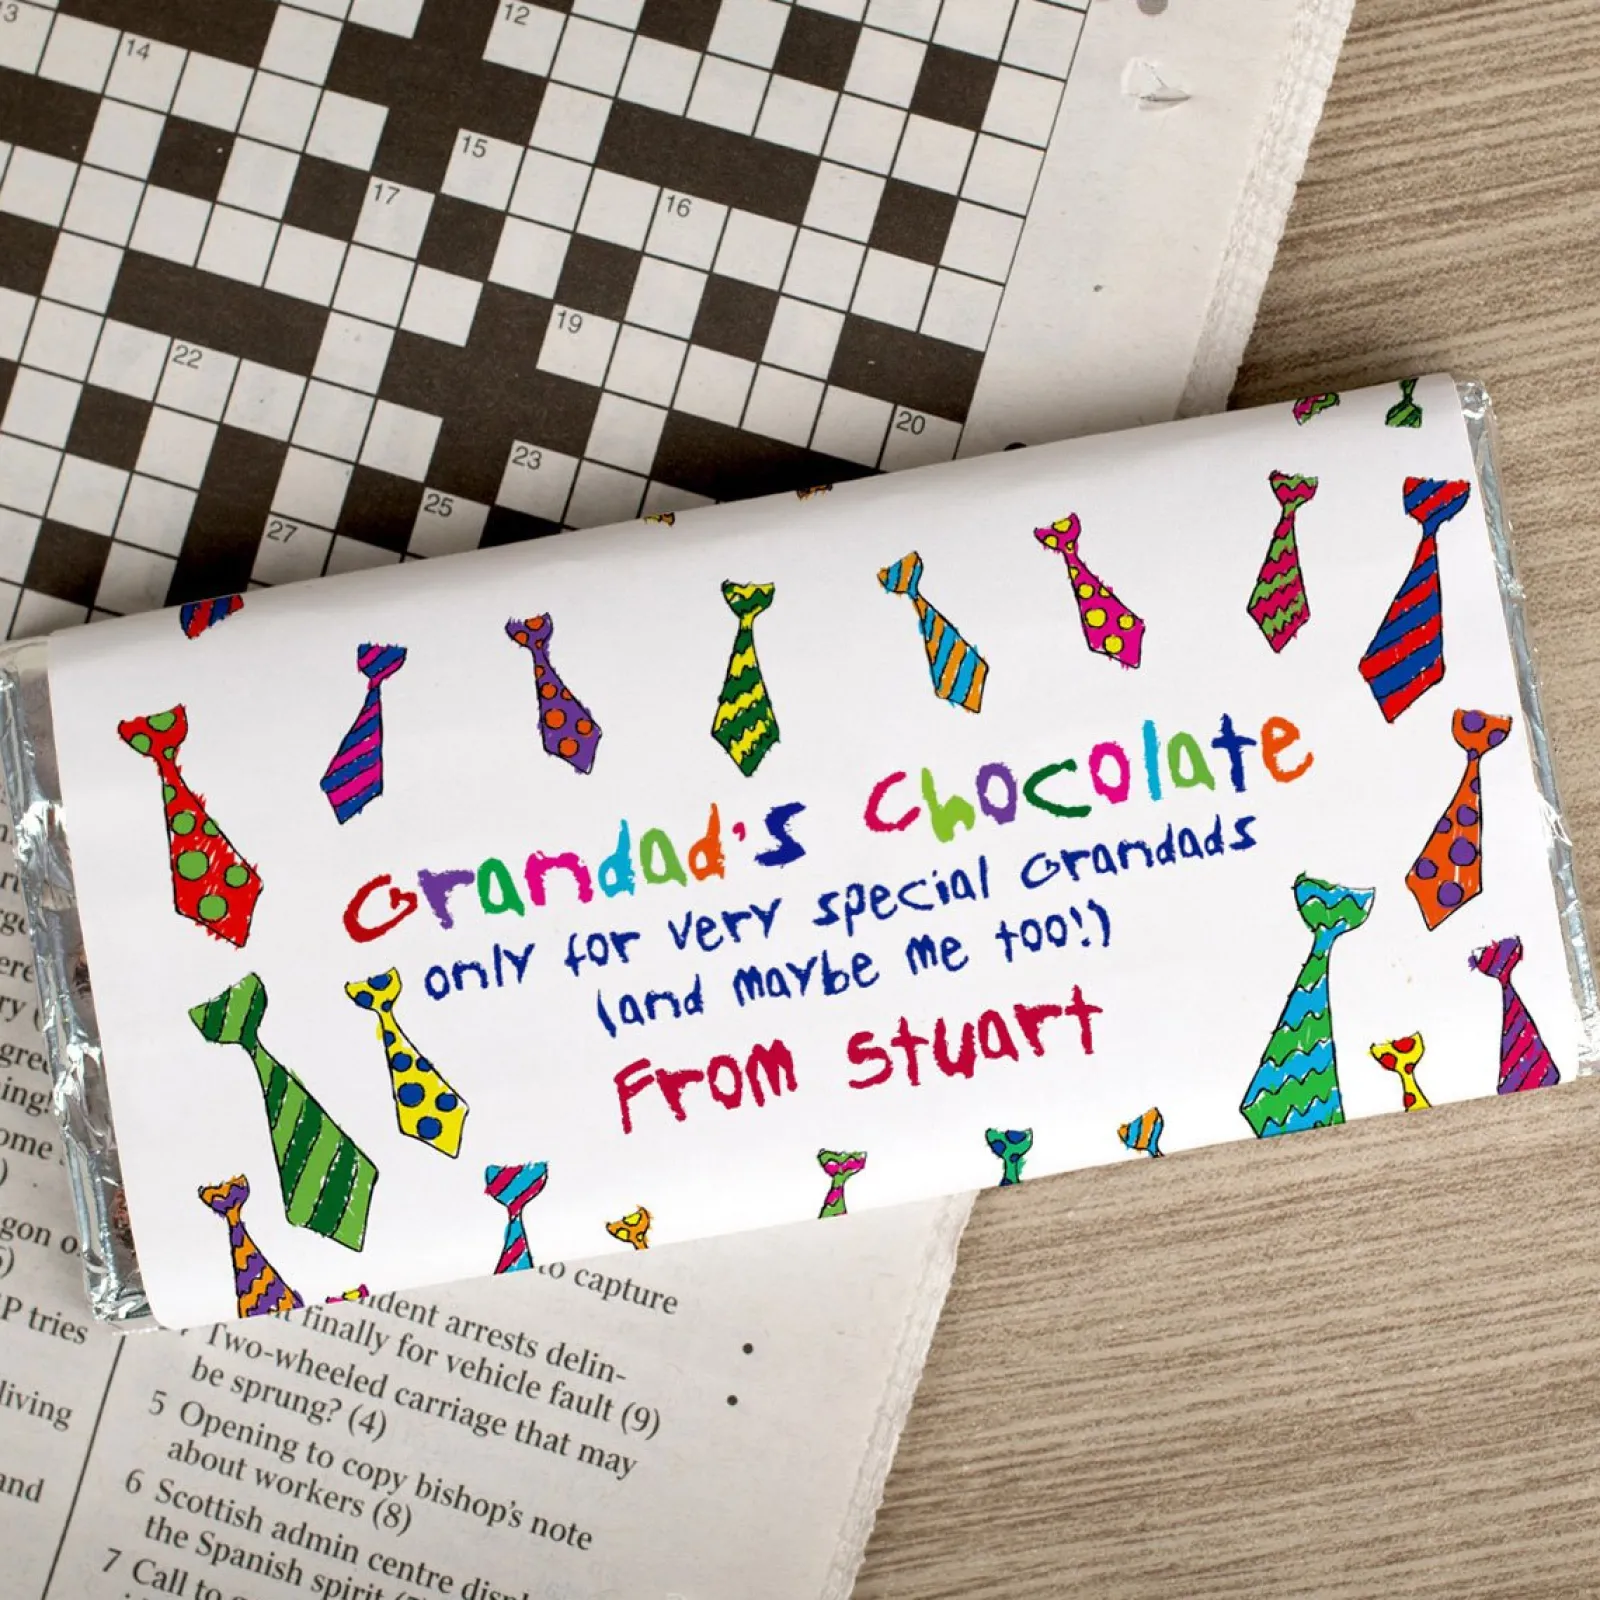 13
12
14
15
17
16
19
22
20
23
25
27
Grandad's Chocolate
only for very special Grandads
(and maybe me too!)
From Stuart
to capture
arrests delin-
finally for vehicle fault (9)
Two-wheeled carriage that may
be sprung? (4)
5 Opening to copy bishop's note
about workers (8)
6 Scottish admin centre
the Spanish spirit
7 Call to
P tries
living
and